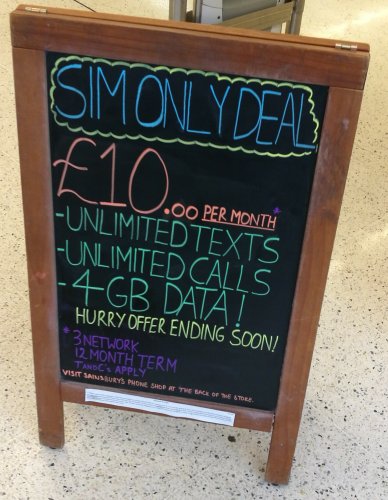 SIM ONLY DEAL
£10.00 PER MONTH*
-UNLIMITED TEXTS
-UNLIMITED CALLS
-4GB DATA!
HURRY OFFER ENDING SOON!
* 3 NETWORK
12 MONTH TERM
T AND C'S APPLY
VISIT SAINSBURY'S PHONE SHOP AT THE BACK OF THE STORE.